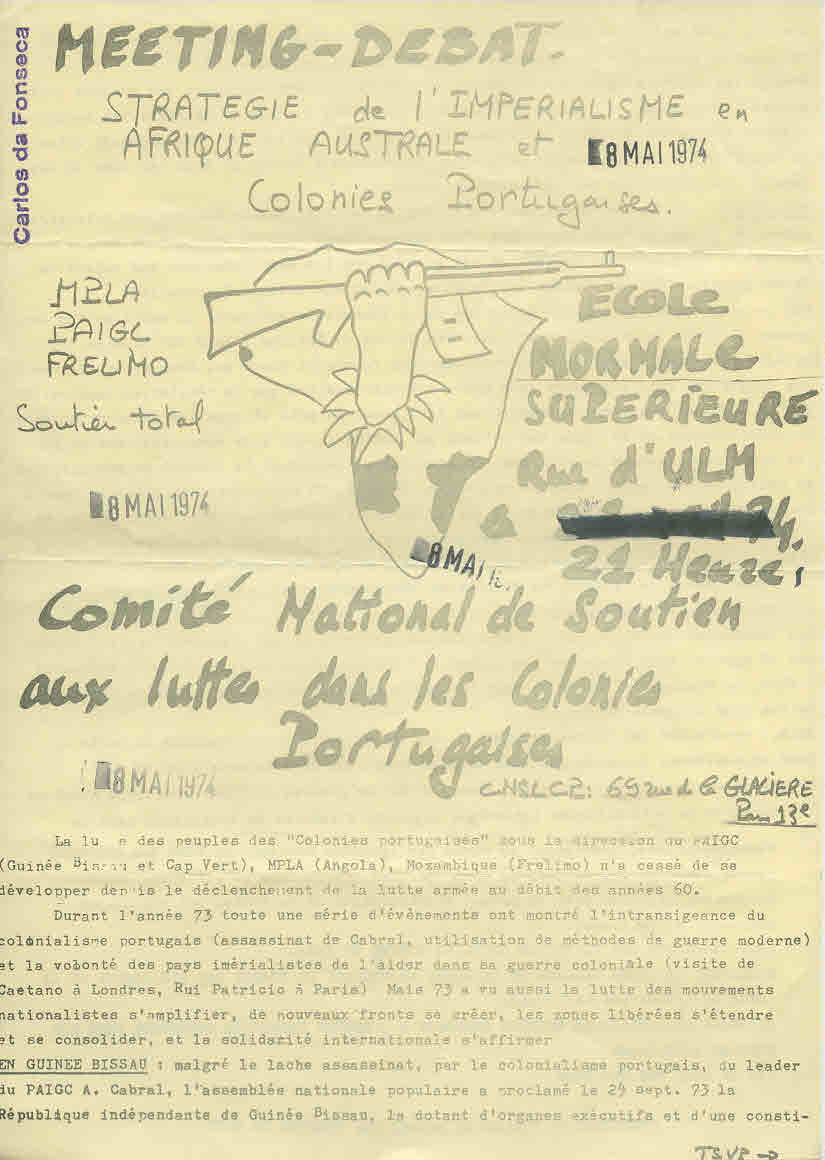 Carlos da Fonseca
MEETING-DEBAT.
STRATEGIE de l'IMPERIALISME en
AFRIQUE AUSTRALE et 8 MAI 1974
Colonies Portugaises.
MPLA
PAIGC
FRELIMO
Soutien total
8 MAI 1974
ECOLE
NORMALE
SUPERIEURE
Rue d'ULM
8 MAI
21 Heures
Comité National de Soutien
aux luttes dans les Colonies
Portugaises
8 MAI 1974
CNSLCP: 69 rue de la GLACIERE
Paris 13e
La lu e des peuples des "Colonies portugaises" sous la direction du PAIGC
(Guinée Bissau et Cap Vert), MPLA (Angola), Mozambique (Frelimo) n'a cessé de se
développer depuis le déclenchement de la lutte armée au débit des années 60.
Durant l'année 73 toute une série d'évènements ont montré l'intransigeance du
colonialisme portugais (assassinat de Cabral, utilisation de méthodes de guerre moderne)
et la volonté des pays imérialistes de l'aider dans sa guerre coloniale (visite de
Caetano à Londres, Rui Patricio à Paris) Mais 73 a vu aussi la lutte des mouvements
nationalistes s'amplifier, de nouveaux fronts se créer, les zones libérées s'étendre
et se consolider, et la solidarité internationale s'affirmer
EN GUINEE BISSAU : malgré le lache assassinat, par le colonialisme portugais, du leader
du PAIGC A. Cabral, l'assemblée nationale populaire a proclamé le 24 sept. 73 la
République indépendante de Guinée Bissau, la dotant d'organes exécutifs et d'une consti-
TSVP →